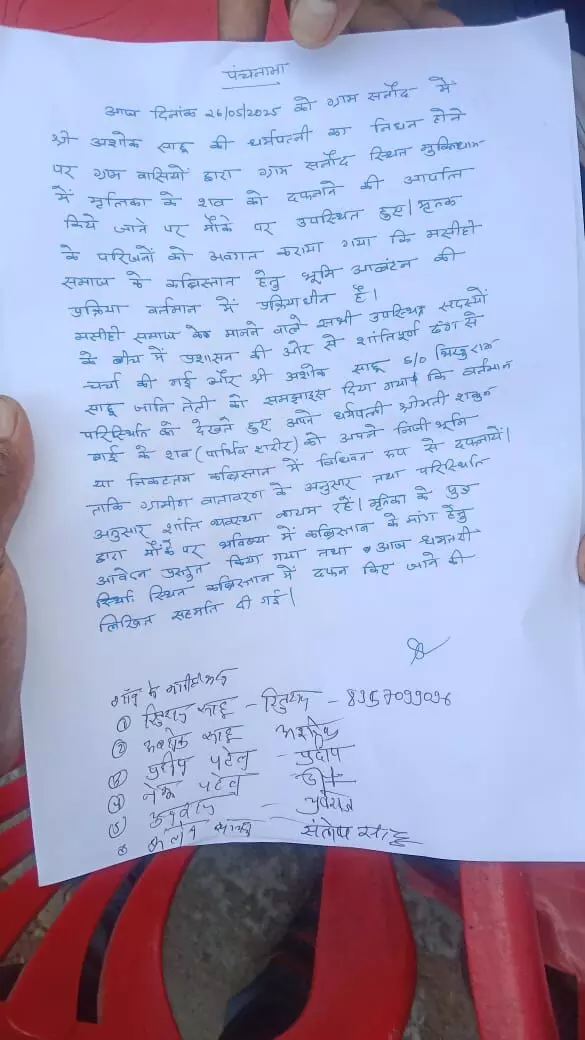 पंचनामा
आज दिनांक 26/05/2025 को ग्राम सर्नोद में
श्री अशोक साहू की धर्मपत्नी का निधन होने
पर ग्राम वासियों द्वारा ग्राम सर्नोद स्थित मुक्तिधाम
में मृतिका के शव को दफनाने की आपत्ति
किये जाने पर मौके पर उपस्थित हुए। मृतक
के परिजनों को अवगत कराया गया कि मसीही
समाज के कब्रिस्तान हेतु भूमि आबंटन की
प्रक्रिया वर्तमान में प्रक्रियाधीन है।
मसीही समाज के मानने वाले सभी उपस्थित सदस्यों
के बीच में प्रशासन की ओर से शांतिपूर्ण ढंग से
चर्चा की गई और श्री अशोक साहू S/O
साहू जाति तेली को समझाइस दिया गया कि वर्तमान
परिस्थिति को देखते हुए अपने धर्मपत्नी श्रीमती
बाई के शव (पार्थिव शरीर) को अपने निजी भूमि
या निकटतम कब्रिस्तान में विधिवत रूप से दफनायें।
ताकि ग्रामीण वातावरण के अनुसार तथा परिस्थिति
अनुसार शांति व्यवस्था कायम रहें। मृतिका के पुत्र
द्वारा मौके पर भविष्य में कब्रिस्तान के मांग हेतु
आवेदन प्रस्तुत किया गया तथा आज धमतरी
स्थित कब्रिस्तान में दफन किए जाने की
लिखित सहमति दी गई।
गाँव के
① साहू - - 8357099096
② अशोक साहू
③ प्रदीप पटेल - प्रदीप
④ पटेल
⑤
⑥ संतोष साहू